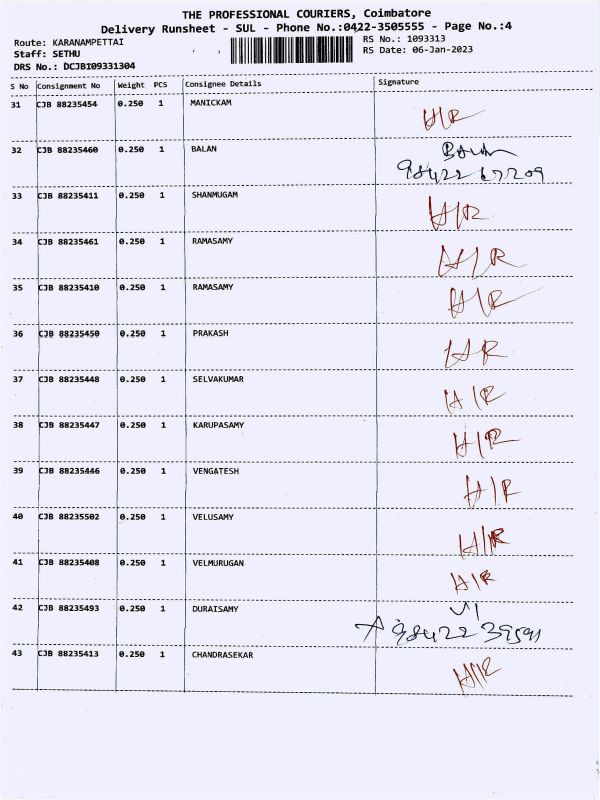 THE PROFESSIONAL COURIERS, Coimbatore
Delivery Runsheet - SUL - Phone No.:0422-3505555 - Page No.:4
Route: KARANAMPETTAI RS No.: 1093313
Staff: SETHU RS Date: 06-Jan-2023
DRS No.: DCJBI09331304
S No Consignment No Weight PCS Consignee Details Signature
31 CJB 88235454 0.250 1 MANICKAM H/R
32 CJB 88235460 0.250 1 BALAN Balan
9842267209
33 CJB 88235411 0.250 1 SHANMUGAM H/R
34 CJB 88235461 0.250 1 RAMASAMY H/R
35 CJB 88235410 0.250 1 RAMASAMY H/R
36 CJB 88235450 0.250 1 PRAKASH H/R
37 CJB 88235448 0.250 1 SELVAKUMAR H/R
38 CJB 88235447 0.250 1 KARUPASAMY H/R
39 CJB 88235446 0.250 1 VENGATESH H/R
40 CJB 88235502 0.250 1 VELUSAMY H/R
41 CJB 88235408 0.250 1 VELMURUGAN H/R
42 CJB 88235493 0.250 1 DURAISAMY
43 CJB 88235413 0.250 1 CHANDRASEKAR H/R